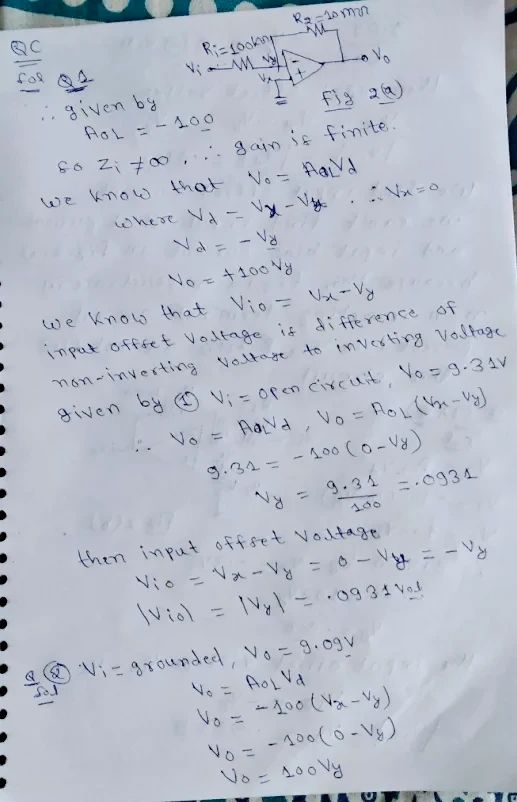 QC
R2=10mΩ
Ri=100kΩ
Vi
Vy
Vx
Vo
Sol Q1
fig 2(a)
∴ given by
AOL = -100
so Zi ≠∞ ∴ gain is finite.
We know that Vo = AOLVd
where Vd = Vx - Vy ∴ Vx=0
Vd = -Vy
Vo = +100Vy
We know that Vio = Vx-Vy
input offset voltage is difference of
non-inverting voltage to inverting voltage
given by ① Vi = open circuit, Vo = 9.31V
∴ Vo = AOLVd, Vo = AOL(Vx-Vy)
9.31 = -100(0-Vy)
Vy = 9.31/100 = .0931
then input offset voltage
Vio = Vx-Vy = 0-Vy = -Vy
|Vio| = |Vy| = .0931 Vol
Q ② Vi = grounded, Vo = 9.09V
Sol
Vo = AOLVd
Vo = -100(Vx-Vy)
Vo = -100(0-Vy)
Vo = 100Vy